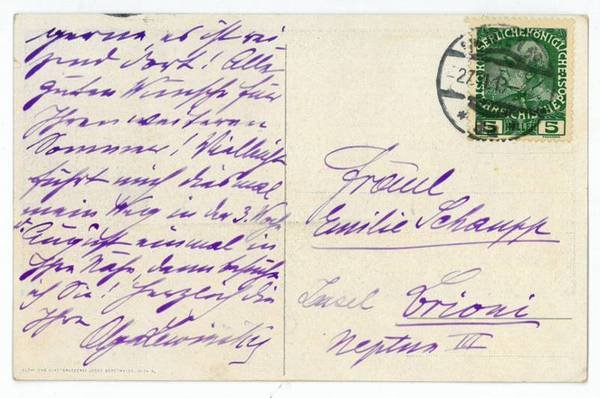 gerne es ist rei
zend dort! Alle
guten Wünsche für
Ihren weiteren
Sommer! Vielleicht
führt mich diesmal
mein Weg in der 3. Woche
August einmal in
Ihre Nähe, dann besuche
ich Sie! Herzlich die
Ihre
Olga Lewinsky
KAISERLICHE KÖNIGLICHE
ÖSTERREICHISCHE POST
5 HELLER 5
Fräul
Emilie Schaupp
Insel Brioni
Neptun III